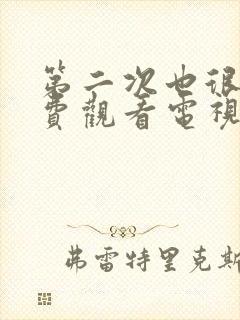 第二次也很
費觀看電視
弗雷特里克斯